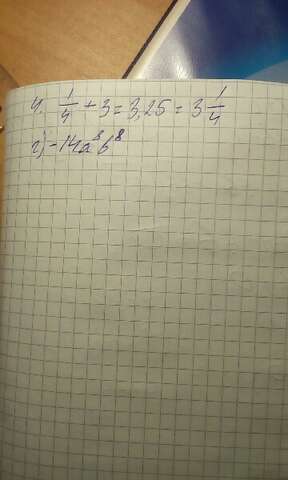 4. 1/4 + 3 = 3,25 = 3 1/4
г) -14a⁸b⁸